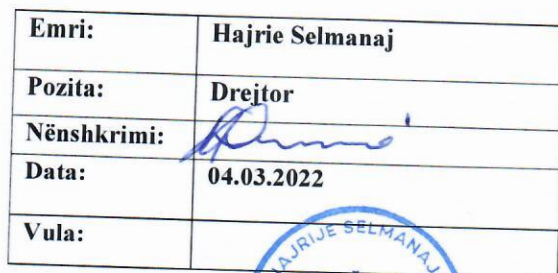 Emri: Hajrie Selmanaj
Pozita: Drejtor
Nënshkrimi:
Data: 04.03.2022
Vula:
HAJRIJE SELMANAJ